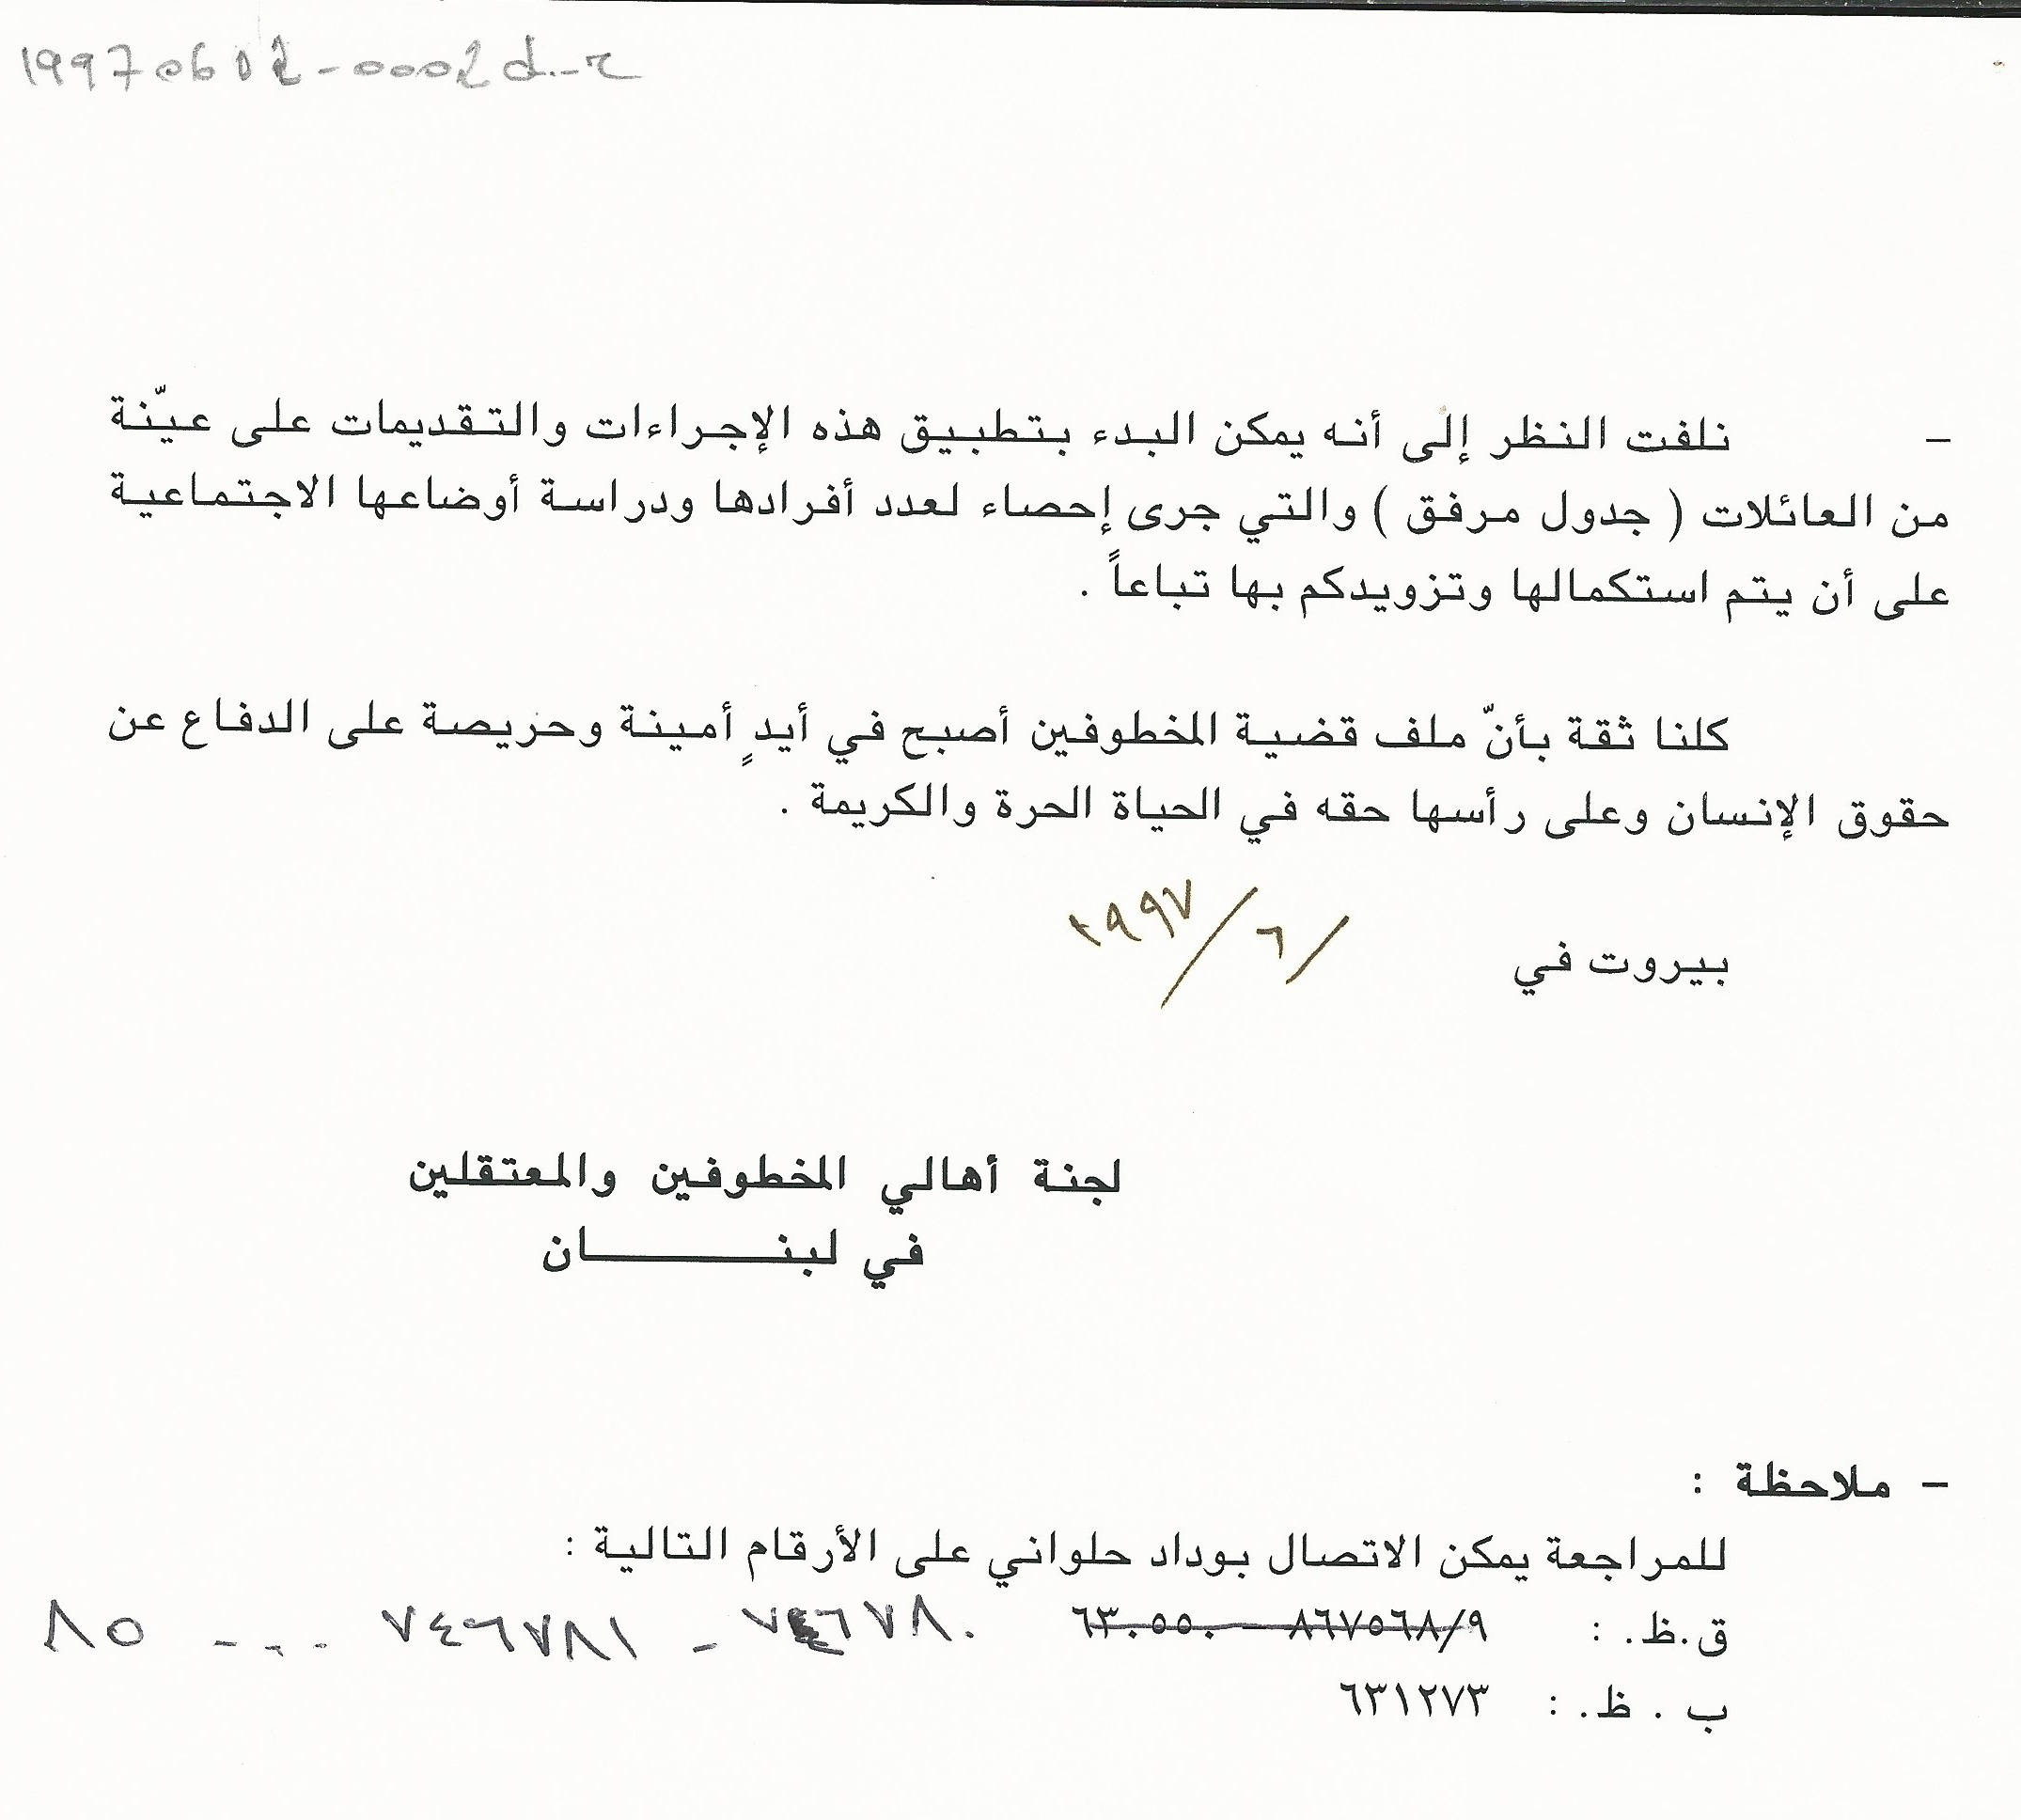 19970602-0002d-r
– نلفت النظر إلى أنه يمكن البدء بتطبيق هذه الإجراءات والتقديمات على عيّنة
من العائلات ( جدول مرفق ) والتي جرى إحصاء لعدد أفرادها ودراسة أوضاعها الاجتماعية
على أن يتم استكمالها وتزويدكم بها تباعاً .
كلنا ثقة بأنّ ملف قضية المخطوفين أصبح في أيدٍ أمينة وحريصة على الدفاع عن
حقوق الإنسان وعلى رأسها حقه في الحياة الحرة والكريمة .
بيروت في / ٦ / ١٩٩٧
لجنة أهالي المخطوفين والمعتقلين
في لبنـــــــان
– ملاحظة :
للمراجعة يمكن الاتصال بوداد حلواني على الأرقام التالية :
ق.ظ. : ٨٦٧٥٦٨/٩ – ٦٣٠٥٥٠ ٧٤٦٧٨٠ - ٧٤٦٧٨١ - - - ٨٥
ب . ظ. : ٦٣١٢٧٣